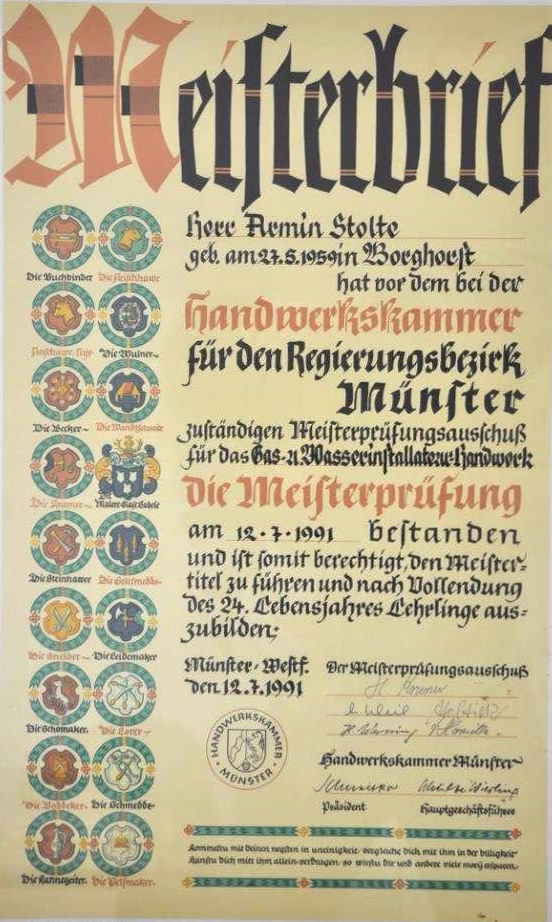 Meisterbrief
Herr Armin Stolte
geb. am 27.5.1959 in Borghorst
hat vor dem bei der
Handwerkskammer
für den Regierungsbezirk
Münster
zuständigen Meisterprüfungsausschuß
für das Gas- u. Wasserinstallateur-Handwerk
die Meisterprüfung
am 12.7.1991 bestanden
und ist somit berechtigt, den Meister-
titel zu führen und nach Vollendung
des 24. Lebensjahres Lehrlinge aus-
zubilden.
Münster-Westf. Der Meisterprüfungsausschuß
den 12.7.1991
HANDWERKSKAMMER
MÜNSTER
Handwerkskammer Münster
Präsident Hauptgeschäftsführer
mit deinen negsten in uneinigkeit, vergleiche dich mit ihm in der billigkeit
Kanstu dich mit ihm allein verdragen, so wirstu dir und andere viele moeij ersparen.
Die Buchbinder Die Fleischhauwer
Die Wulner
Die Becker Die Wandtschneider
Die Kramer
Die Steinhauwer Die Goltsmedde
Die Snieder Die Leidemaker
Die Schomaker Die Lorer
Die Boddeker Die Schmedde
Die Kannegeiter Die Pelsmaker